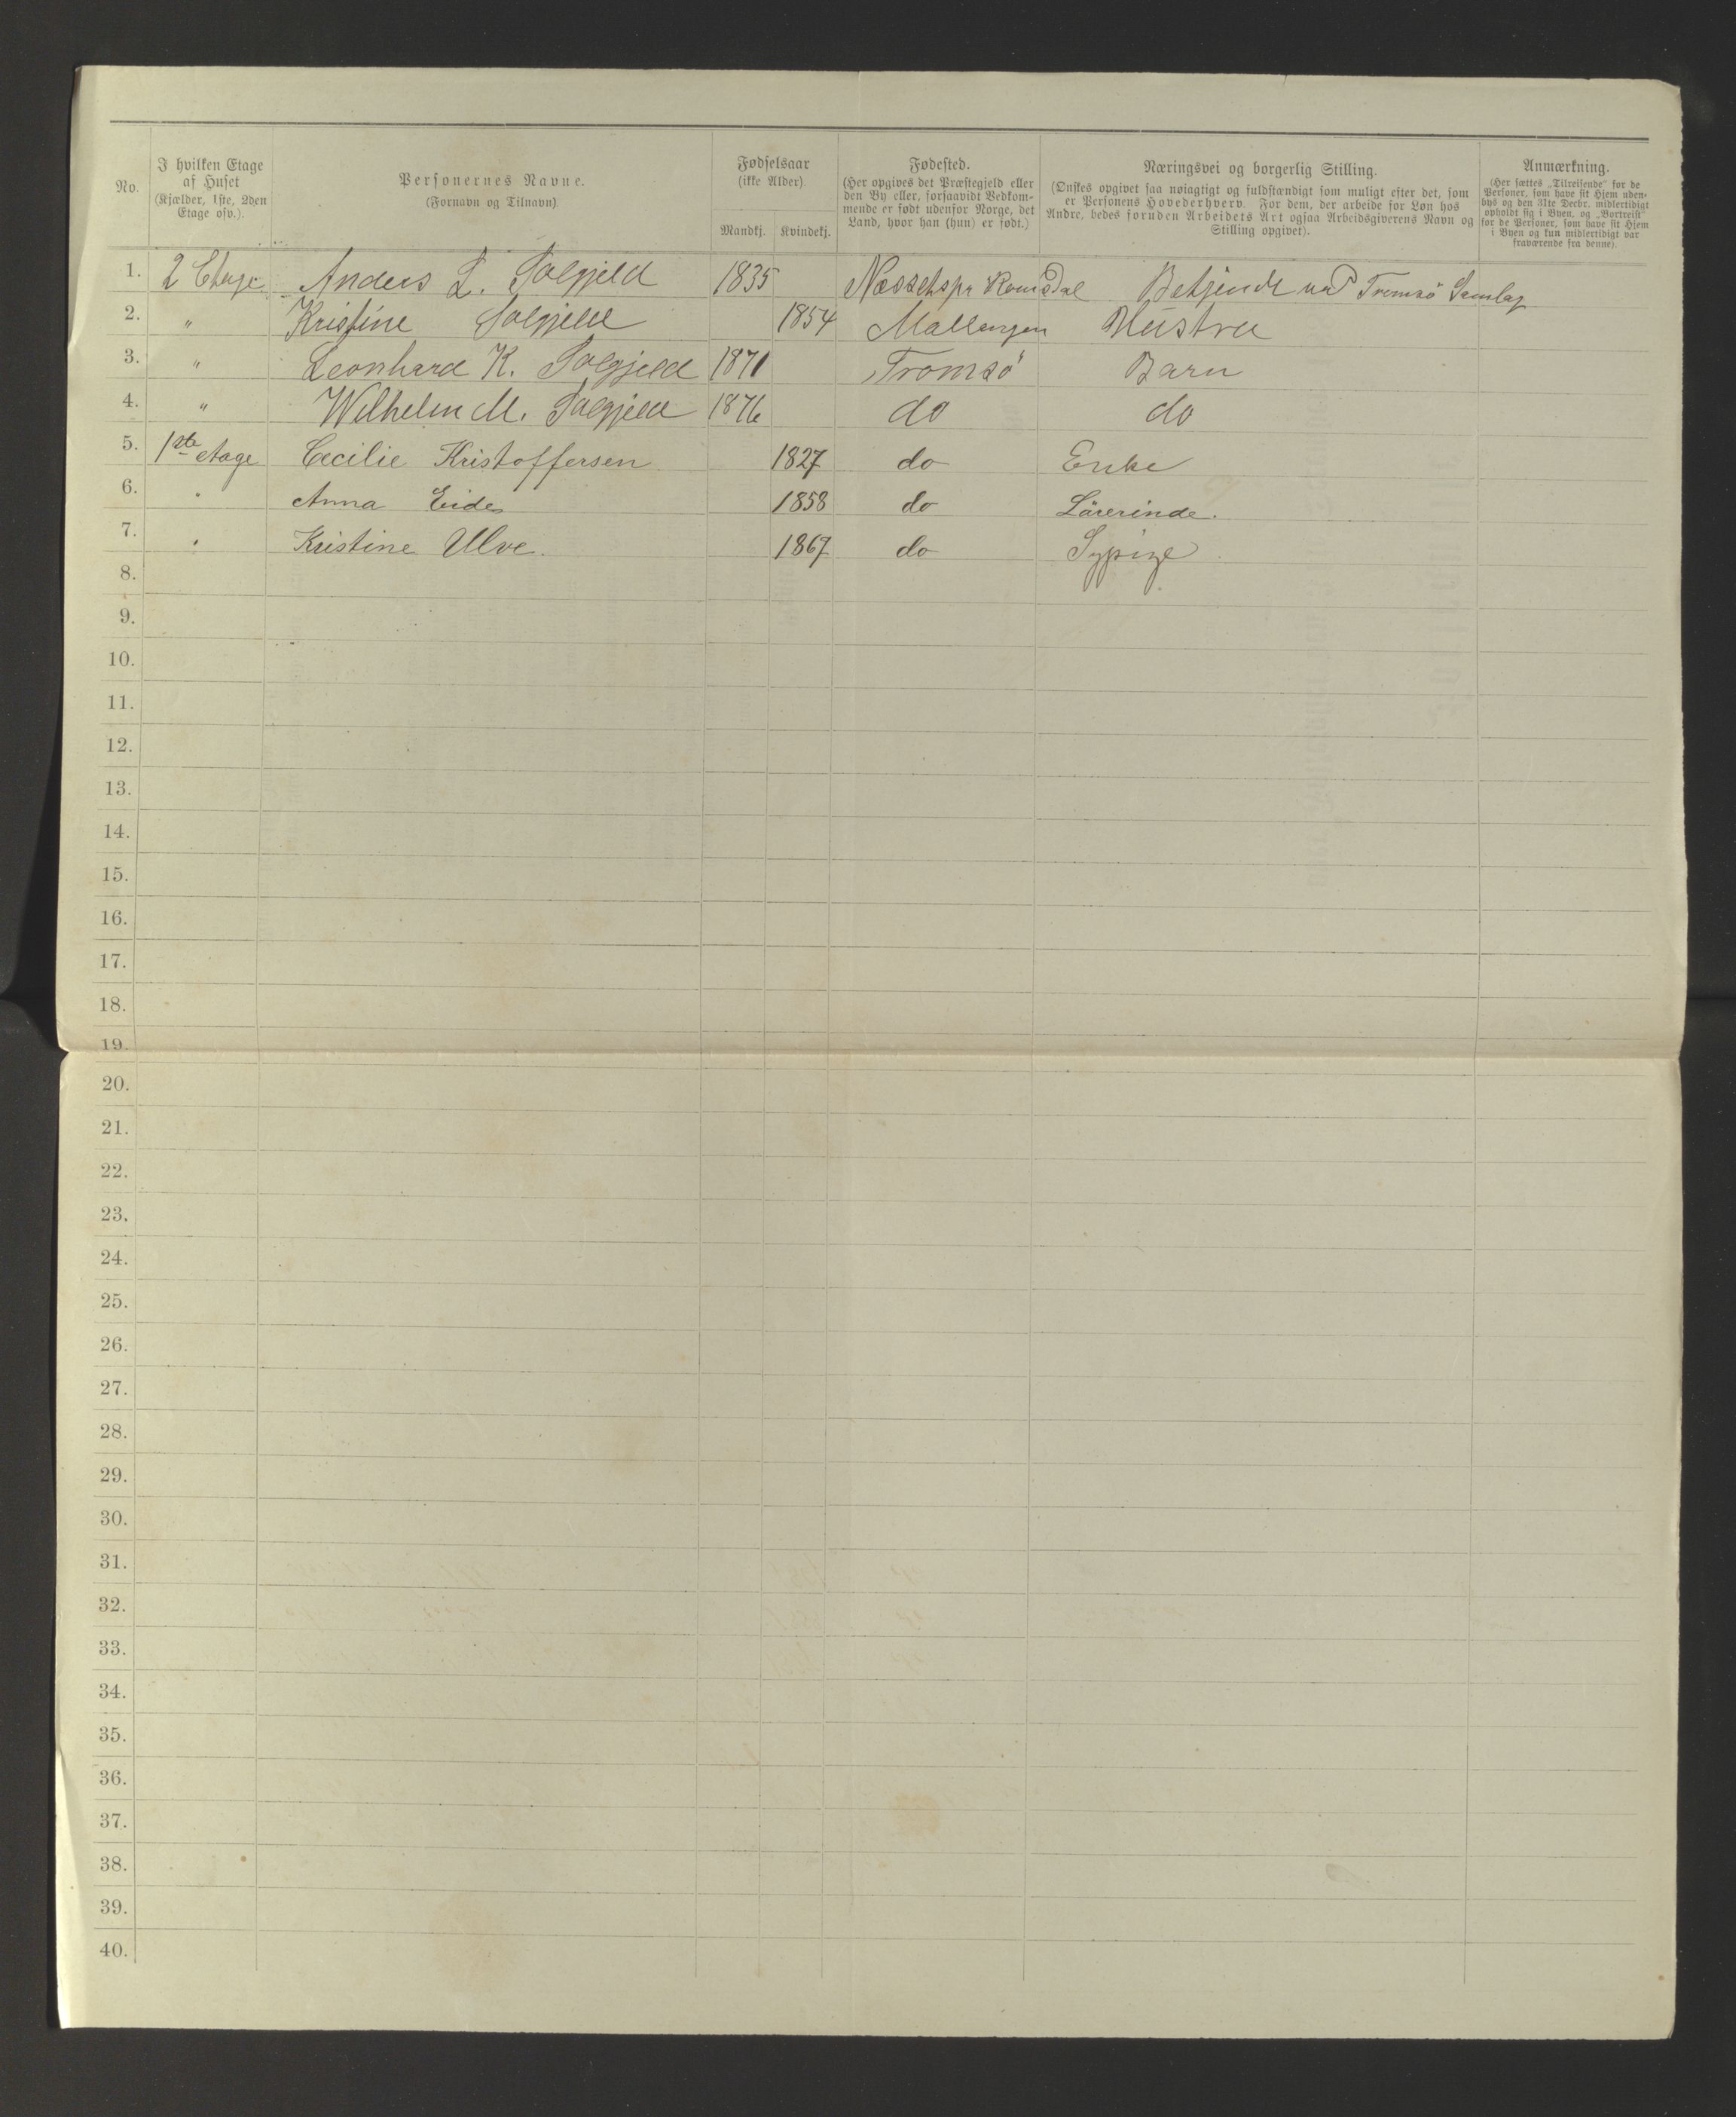 No.
I hvilken Etage
af Huset
(Kjælder, 1ste, 2den
Etage osv.).
Personernes Navne.
(Fornavn og Tilnavn)
Fødselsaar
(ikke Alder)
Mandkj. Kvindekj.
Fødested.
(Her opgives det Præstegjeld eller
den By eller, forsaavidt Vedkom-
mende er født udenfor Norge, det
Land, hvor han (hun) er født.)
Næringsvei og borgerlig Stilling.
(Ønskes opgivet saa nøiagtigt og fuldstændigt som muligt efter det, som
er Personens Hovederhverv. For dem, der arbeide for Løn hos
Andre, bedes foruden Arbeidets Art ogsaa Arbeidsgiverens Navn og
Stilling opgivet).
Anmærkning.
(Her sættes „Tilreisende“ for de
Personer, som have sit Hjem uden-
bys og den 31te Decbr. midlertidigt
opholdt sig i Byen, og „Bortreist“
for de Personer, som have sit Hjem
i Byen og kun midlertidigt var
fraværende fra denne).
1. 2 Etage Anders L. Solgjeld 1835 Næssetspr Romsdal Betjendt ved Tromsö Samlag
2. " Kristine Solgjeld 1854 Mallangen Hustru
3. " Leonhard K. Solgjeld 1871 Tromsö Barn
4. " Wilhelm M. Solgjeld 1876 do do
5. 1ste etage Cecilie Kristoffersen 1827 do Enke
6. " Anna Eide 1858 do Lärerinde.
7. " Kristine Ulve. 1867 do Sypige
8.
9.
10.
11.
12.
13.
14.
15.
16.
17.
18.
19.
20.
21.
22.
23.
24.
25.
26.
27.
28.
29.
30.
31.
32.
33.
34.
35.
36.
37.
38.
39.
40.